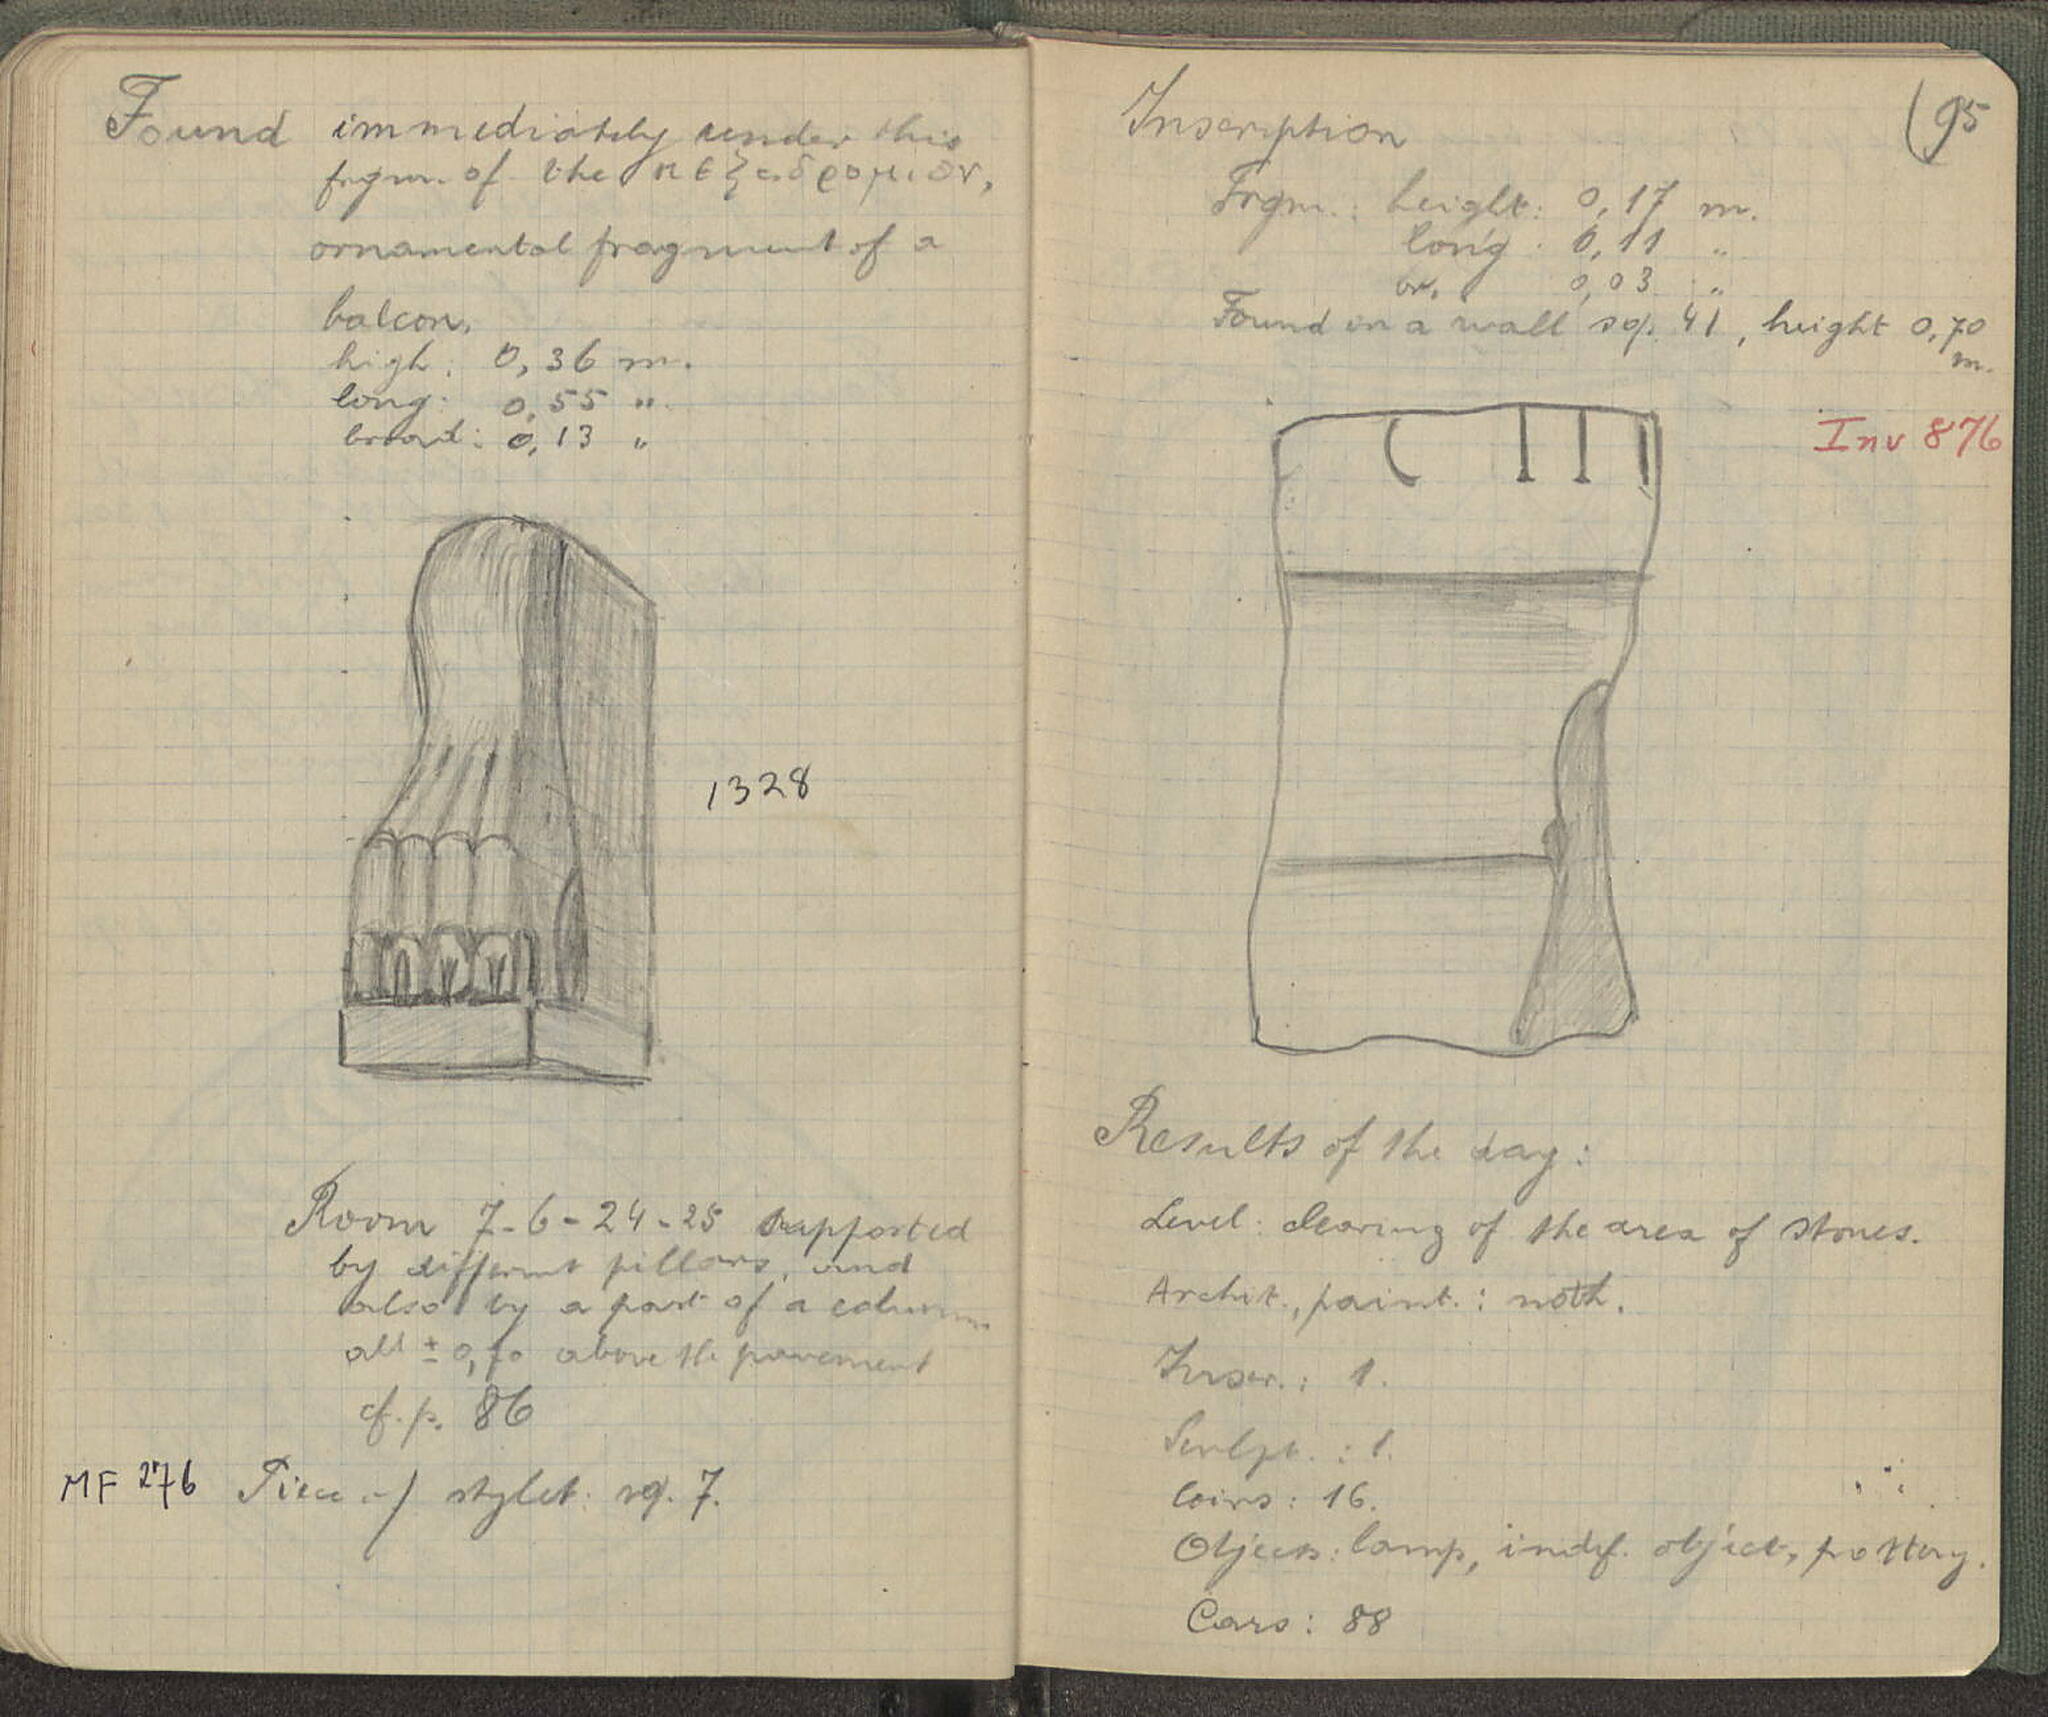 Found immediately under this
frgm. of the πεζοδρομιον,
ornamental fragment of a
balcon,
high: 0,36 m.
long: 0,55 "
broad: 0,13 "
1328
Room 7-6-24-25 supported
by different pillars, and
also by a part of a column
all ± 0,70 above the pavement
cf. p. 86
MF 276 Piece of stylet: sq. 7.
(95
Inscription
Frgm.: height: 0,17 m.
long: 0,11 "
br. 0,03 "
Found in a wall sq. 41, height 0,70
m.
Inv 876
Results of the day:
Level: Clearing of the area of stones.
Archit., paint.: noth.
Inscr.: 1.
Sculpt.: 1.
Coins: 16.
Objects: lamp, indef. object, pottery.
Cars: 88